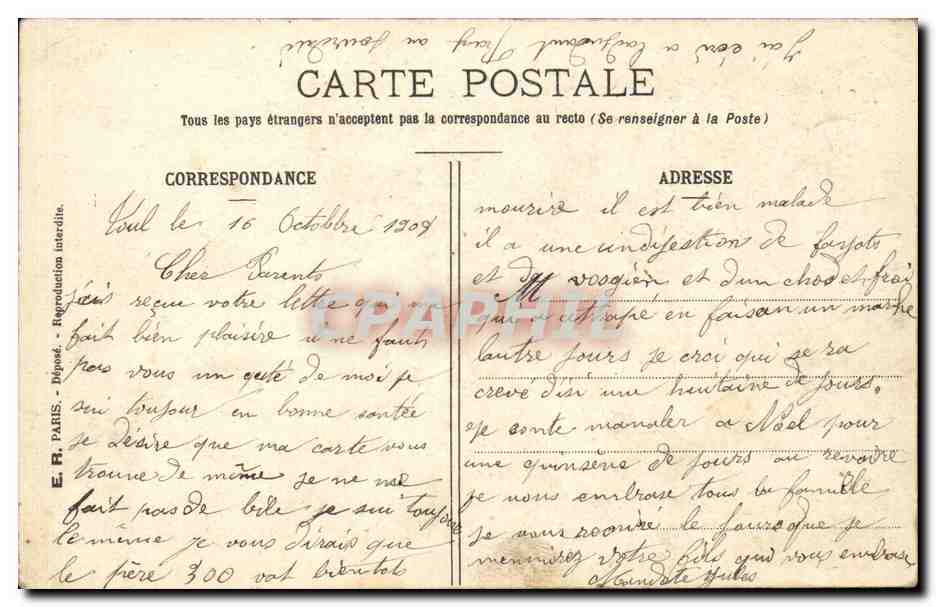 J'ai écri a
CARTE POSTALE
Tous les pays étrangers n'acceptent pas la correspondance au recto (Se renseigner à la Poste)
CORRESPONDANCE
ADRESSE
E. R. PARIS. - Déposé. - Reproduction interdite.
Toul le 16 Octobbre 1908
Cher Parents
j'ais reçue votre lettre qui me
fait bien plaisire il ne faut
pas vous un de moi je
sui toujour en bonne santée
je désire que ma carte vous
trouve de même je ne me
fait pas de bile je sui toujour
le même je vous dirais que
le père 300 vat bientots
mourire il est bien malade
il a une undigestion de fayots
et du vosgien et d'un chod et frai
M
qui a attrapé en faisan un marche
lautre jours je croi qui se ra
crevé disi une huitaine de jours.
je conte manaler a Nöel pour
une quinsène de jours au revoire
je vous embrase tous la famille
je vous le que je
votre fils qui vous embrase
Jules
CPAPHIL